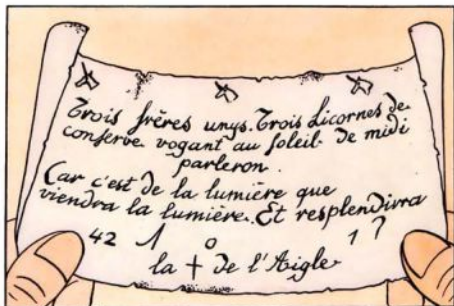 Trois frères unys. Trois Licornes de
conserve voguant au soleil de midi
parleron.
Car c'est de la lumière que
viendra la lumière. Et resplendira
42 1 0 1 ?
la + de l'Aigle